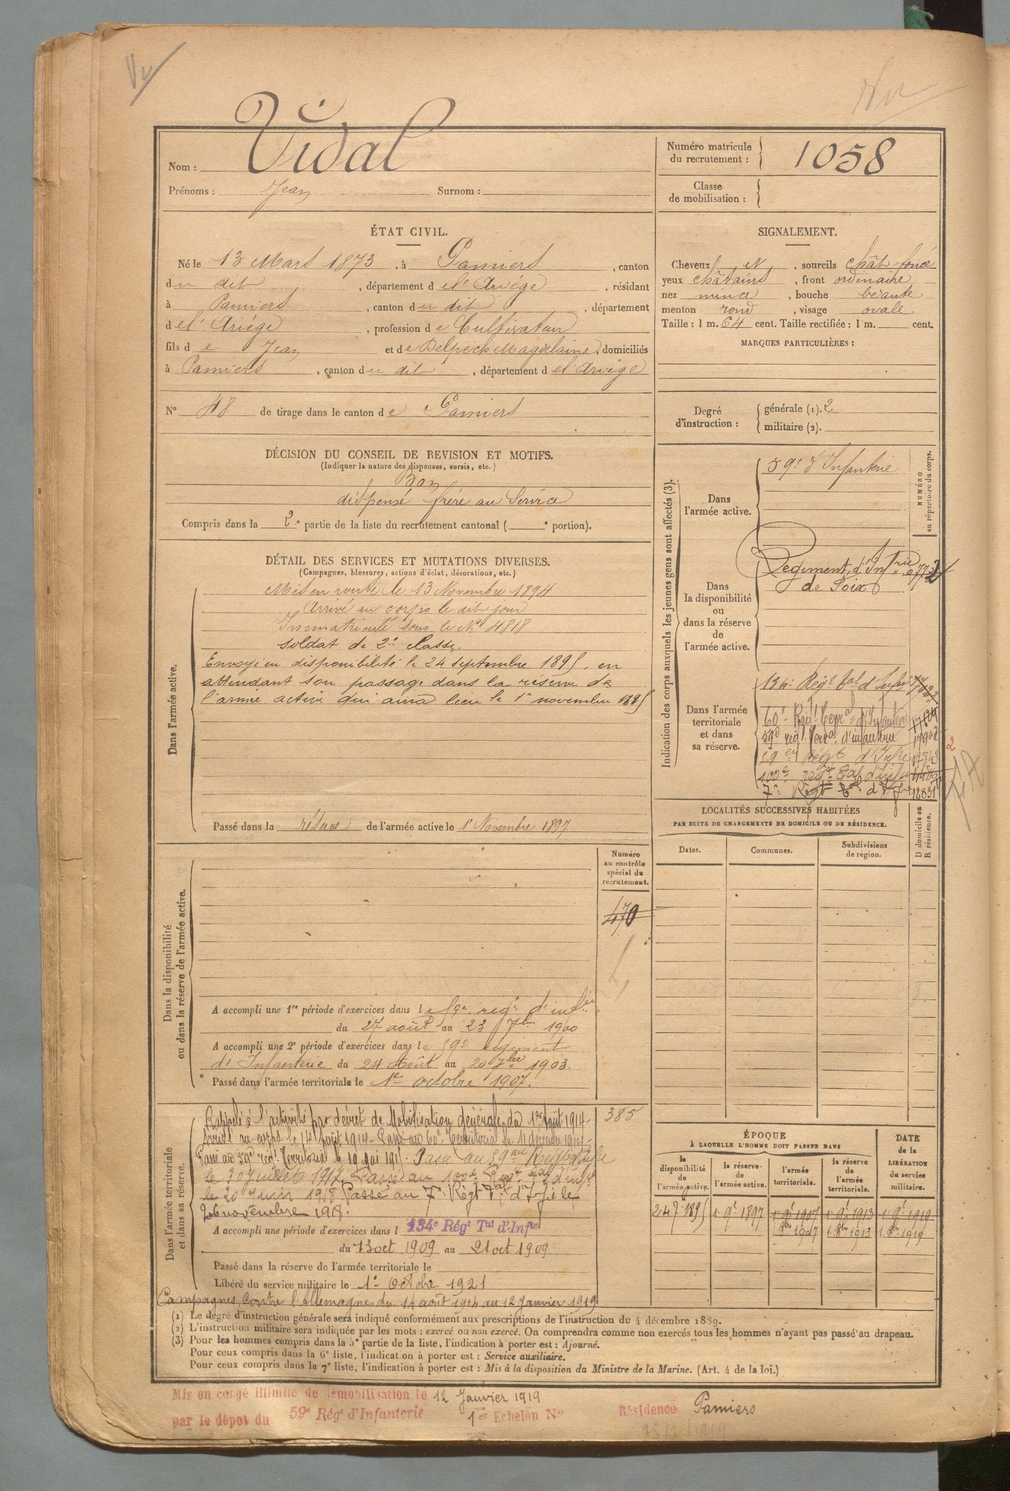 Vidal
Nom :
Prénoms : Jean Surnom :
Numéro matricule du recrutement : 1058
Classe de mobilisation :
ÉTAT CIVIL.
Né le 13 Mars 1873, à Pamiers, canton
du dit, département de l'Ariège, résidant
à Pamiers, canton du dit, département
de l'Ariège, profession de Cultivateur
fils de Jean et de Magdelaine, domiciliés
à Pamiers, canton du dit, département de l'Ariège
N° 48 de tirage dans le canton de Pamiers
SIGNALEMENT.
Cheveux et, sourcils chât. foncé
yeux châtains, front ordinaire
nez mince, bouche béante
menton rond, visage ovale
Taille : 1 m. 64 cent. Taille rectifiée : 1 m. cent.
MARQUES PARTICULIÈRES :
Degré d'instruction : générale (1). 2
militaire (2).
DÉCISION DU CONSEIL DE REVISION ET MOTIFS.
(Indiquer la nature des dispenses, sursis, etc.)
Bon
dispensé frère au Service
Compris dans la 2e partie de la liste du recrutement cantonal ( e portion).
DÉTAIL DES SERVICES ET MUTATIONS DIVERSES.
(Campagnes, blessures, actions d'éclat, décorations, etc.)
Dans l'armée active.
Mis en route le 13 Novembre 1894
Arrivé au corps le dit jour
Immatriculé sous le N° 4818
soldat de 2e Classe.
Envoyé en disponibilité le 24 septembre 1895, en
attendant son passage dans la réserve de
l'armée active qui aura lieu le 1er novembre
Passé dans la réserve de l'armée active le 1er Novembre 1897
Indication des corps auxquels les jeunes gens sont affectés (3).
NUMÉRO au répertoire du corps.
Dans l'armée active.
59e d'Infanterie
Dans la disponibilité ou dans la réserve de l'armée active.
Régiment d'Intrie
de Foix
Dans l'armée territoriale et dans sa réserve.
134e Régt tal d'Infie
60e Régt Territal d'Infanterie
59e régt territal d'infanterie
régt d'Infie
100e régt tal d'infie
7e Régt tal d'Infie 12831
LOCALITÉS SUCCESSIVES HABITÉES
PAR SUITE DE CHANGEMENTS DE DOMICILE OU DE RÉSIDENCE.
Dates. Communes. Subdivisions de région. D domicile ou R résidence.
Dans la disponibilité ou dans la réserve de l'armée active.
Numéro au contrôle spécial du recrutement.
470
A accompli une 1re période d'exercices dans le 59e régt d'infie
du 27 août au 23 7bre 1900
A accompli une 2e période d'exercices dans le 59e régiment
d'Infanterie du 24 Août au 20 7bre 1903.
Passé dans l'armée territoriale le 1er octobre 1907.
Dans l'armée territoriale et dans sa réserve.
385
Rappelé à l'activité par décret de Mobilisation générale du 1er août 1914.
Arrivé au corps le 14 août 1914. Passé au 60e Territorial le
Passé au 59e régt Territorial le 19 mai 1915. Passé au
le 30 juillet 1917. Passé au 100e Régt tal d'infie
le 20 juin 1918 Passé au 7e Régt tal d'Infie le
26 novembre 1918.
A accompli une période d'exercices dans l 134e Régt Tal d'Infie
du 13 oct 1909 au 21 oct 1909
Passé dans la réserve de l'armée territoriale le
Libéré du service militaire le 1er Octobre 1921
Campagnes contre l'allemagne du 14 août 1914 au 12 janvier 1919
ÉPOQUE
À LAQUELLE L'HOMME DOIT PASSER DANS
la disponibilité de l'armée active. la réserve de l'armée active. l'armée territoriale. la réserve de l'armée territoriale.
DATE de la LIBÉRATION du service militaire.
24 7bre 1895 1er 9bre 1897 1er 9bre 1907 1er 9bre 1913 1er 9bre 1919
1er 8bre 1907 1er 8bre 1913 1er 8bre 1919
(1) Le degré d'instruction générale sera indiqué conformément aux prescriptions de l'instruction du 4 décembre 1889.
(2) L'instruction militaire sera indiquée par les mots : exercé ou non exercé. On comprendra comme non exercés tous les hommes n'ayant pas passé au drapeau.
(3) Pour les hommes compris dans la 5e partie de la liste, l'indication à porter est : Ajourné.
Pour ceux compris dans la 6e liste, l'indication à porter est : Service auxiliaire.
Pour ceux compris dans la 7e liste, l'indication à porter est : Mis à la disposition du Ministre de la Marine. (Art. 4 de la loi.)
Mis en congé illimité de démobilisation le 12 Janvier 1919
par le dépôt du 59e Régt d'Infanterie 1er Echelon N° Résidence Pamiers